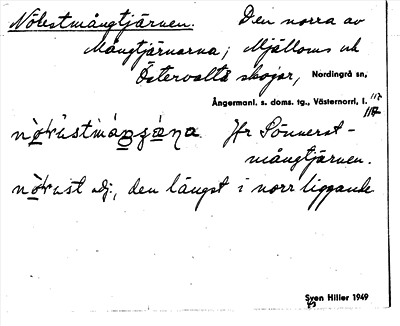 Nölestmångtjärnen. Den norra av
Mångtjärnarna; Mjälloms och
Östervalls skogar, Nordingrå sn,
Ångermanl. s. doms. tg., Västernorrl. l. 117
Jfr Sönnerst-
mångtjärnen.
adj., den längst i norr liggande
Sven Hiller 1949